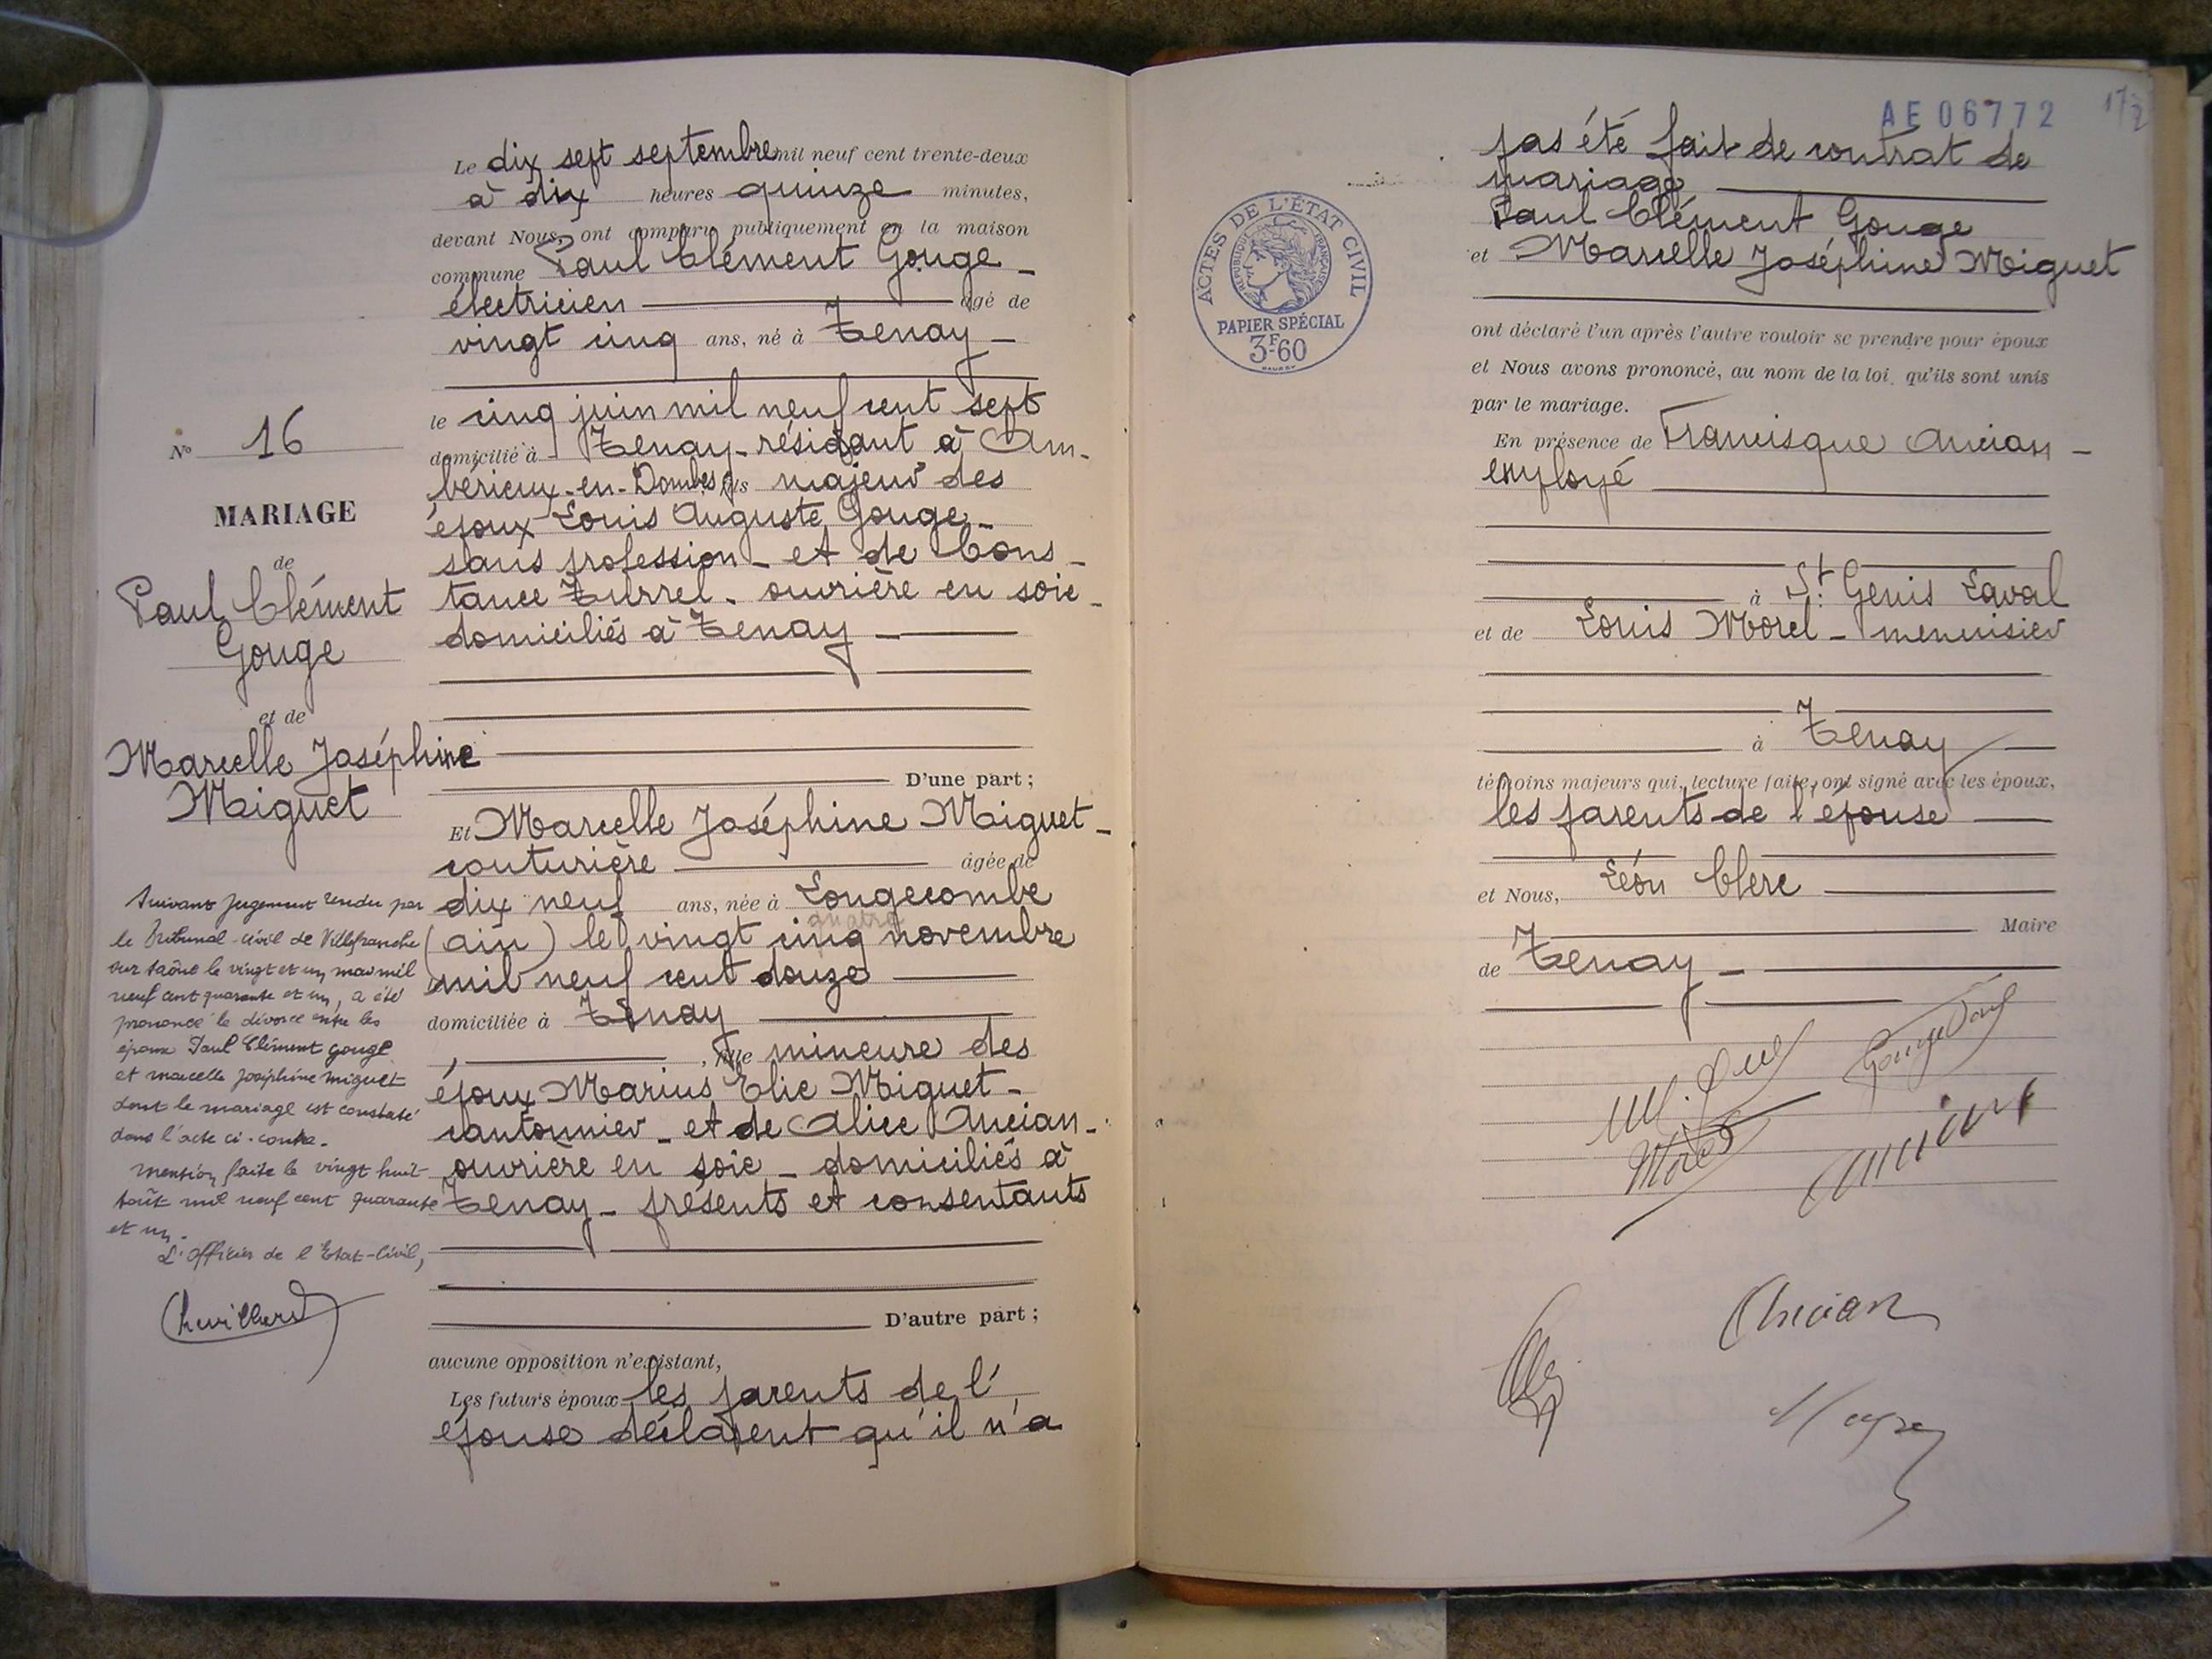 Nº 16
MARIAGE
de
Paul Clément
Gouge
et de
Marcelle Joséphine
Miguet
Suivant jugement rendu par
le Tribunal civil de Villefranche
sur Saône le vingt et un mai mil
neuf cent quarante et un, a été
prononcé le divorce entre les
époux Paul Clément Gouge
et Marcelle Joséphine Miguet
dont le mariage est constaté
dans l'acte ci-contre.
Mention faite le vingt huit
août mil neuf cent quarante
et un.
L'Officier de l'Etat-Civil,
Le dix sept septembre mil neuf cent trente-deux
à dix heures quinze minutes,
devant Nous, ont comparu publiquement en la maison
commune Paul Clément Gouge
électricien âgé de
vingt cinq ans, né à Tenay
le cinq juin mil neuf cent sept
domicilié à Tenay - résidant à Am-
bérieux-en-Dombes fils majeur des
époux Louis Auguste Gouge -
sans profession - et de Cons-
tance Turrel - ouvrière en soie -
domiciliés à Tenay
D'une part ;
Et Marcelle Joséphine Miguet -
couturière âgée de
dix neuf ans, née à Longecombe
quatre
(ain) le vingt cinq novembre
mil neuf cent douze
domiciliée à Tenay
, fille mineure des
époux Marius Elie Miguet -
cantonnier - et de Alice Ancian -
ouvrière en soie - domiciliés à
Tenay - présents et consentants
D'autre part ;
aucune opposition n'existant,
Les futurs époux les parents de l'
épouse déclarent qu'il n'a
AE 06772
172
ACTES DE L'ÉTAT CIVIL
RÉPUBLIQUE FRANÇAISE
PAPIER SPÉCIAL
3F-60
pas été fait de contrat de
mariage
Paul Clément Gouge
et Marcelle Joséphine Miguet
ont déclaré l'un après l'autre vouloir se prendre pour époux
et Nous avons prononcé, au nom de la loi, qu'ils sont unis
par le mariage.
En présence de Francisque Ancian -
employé
à St Genis Laval
et de Louis Morel - menuisier
à Tenay
témoins majeurs qui, lecture faite, ont signé avec les époux,
les parents de l'épouse
et Nous, Léon Clerc
Maire
de Tenay
Gouge Paul
Morel
Ancian
Ancian